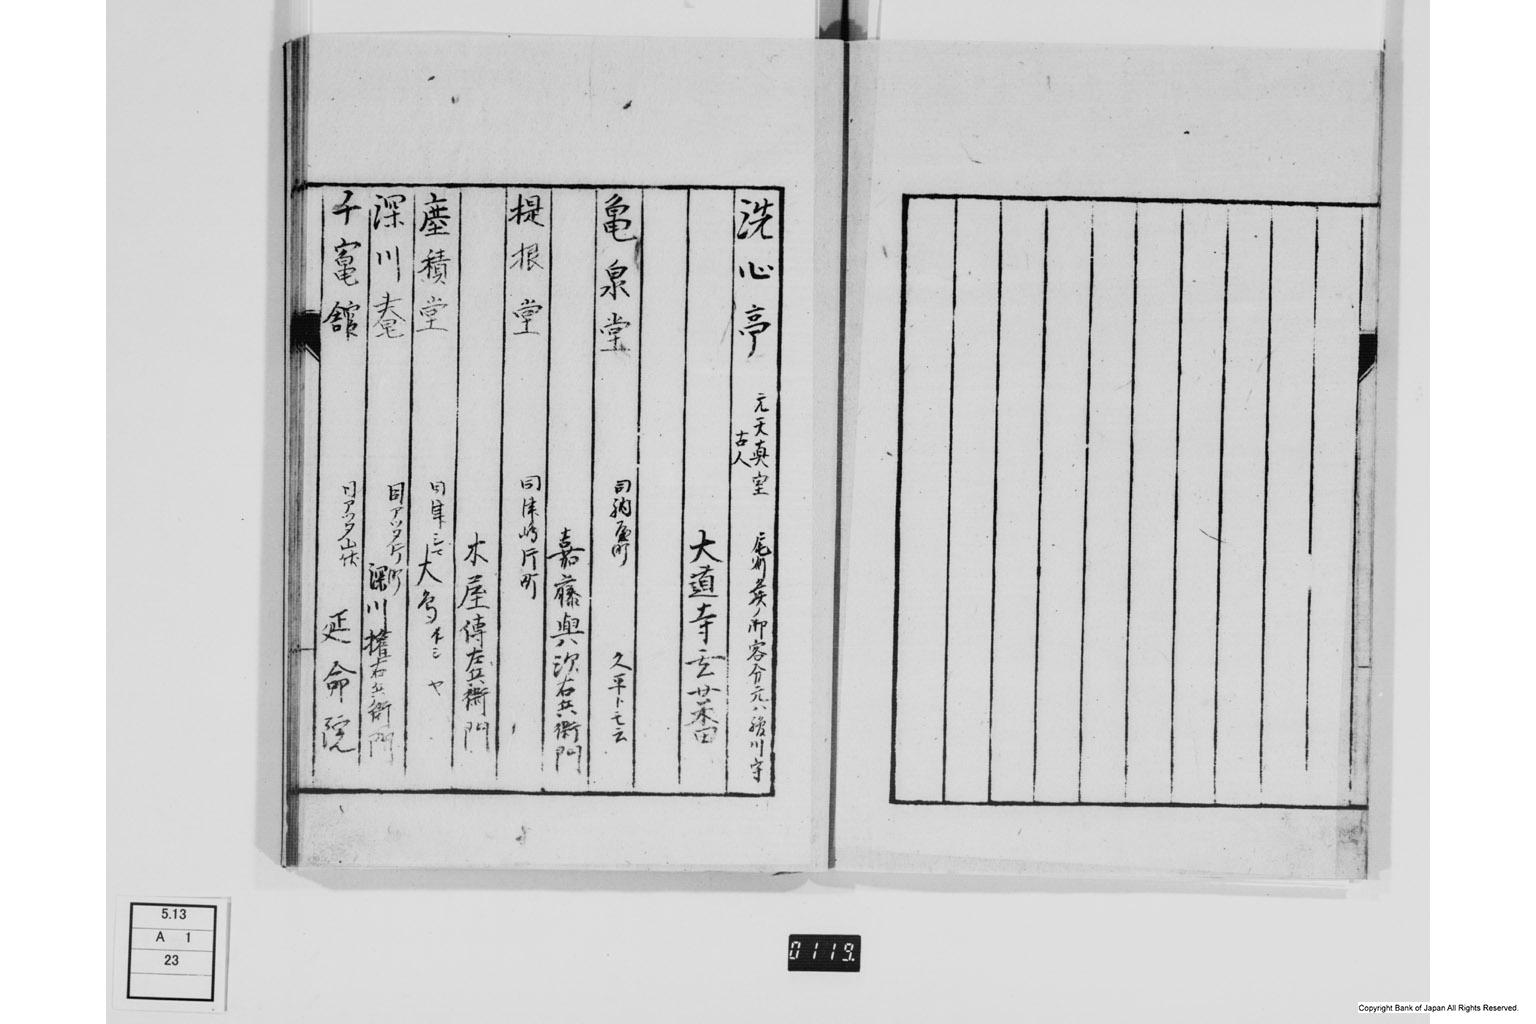 洗心亭
元天真室
古人
尾州矦ノ御客分元ハ駿川守
大道寺玄蕃
亀泉堂
同納屋町
久平トモ云
嘉藤與次右兵衛門
提根堂
同津嶋片町
木屋傳左兵衛門
塵積堂
同津
大
深川
同アツタ片町
深川権右兵衛門
千竃舘
同アツタ山伏
延命院
5.13
A 1
23
0119.
Copyright Bank of Japan All Rights Reserved.